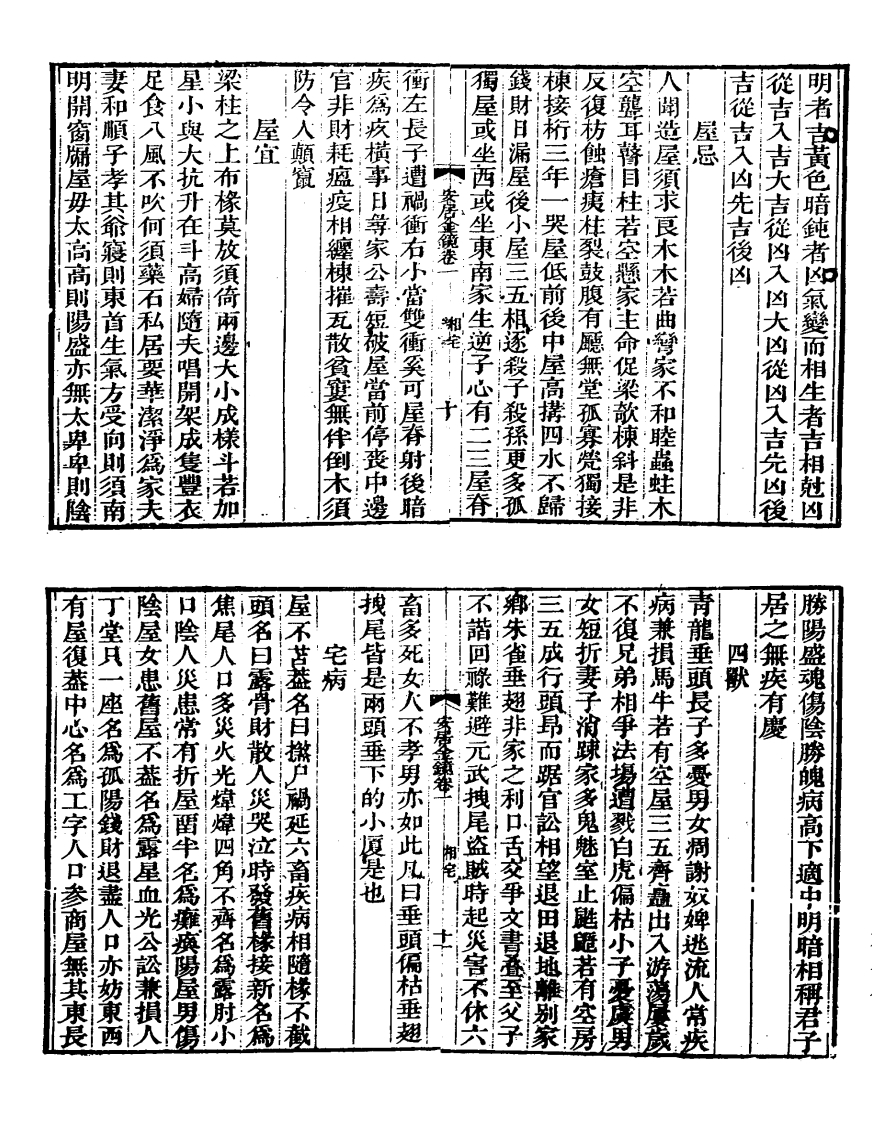 明者吉黃色暗鈍者凶氣變而相生者吉相尅凶
從吉入吉大吉從凶入凶大凶從凶入吉先凶後
吉從吉入凶先吉後凶
屋忌
人間造屋須求良木木若曲彎家不和睦蟲蛀木
空聾耳瞽目柱若空懸家主命促梁欹棟斜是非
反復枋蝕瘡痍柱裂鼓腹有廳無堂孤寡煢獨接
棟接桁三年一哭屋低前後中屋高搆四水不歸
錢財日漏屋後小屋三五相逐殺子殺孫更多孤
獨屋或坐西或坐東南家生逆子心有二三屋脊
安居金鏡卷一
相宅
十
衝左長子遭禍衝右小當雙衝奚可屋脊射後暗
疾爲疚橫事日尋家公壽短破屋當前停喪中邊
官非財耗瘟疫相纏棟摧瓦散貧窶無伴倒木須
防令人顛竄
屋宜
梁柱之上布椽莫放須倚兩邊大小成樣斗若加
星小與大抗升在斗高婦隨夫唱開架成隻豐衣
足食八風不吹何須藥石私居要華潔淨爲家夫
妻和順子孝其爺寢則東首生氣方受向則須南
明開窗牖屋毋太高高則陽盛亦無太卑卑則陰
勝陽盛魂傷陰勝魄病高下適中明暗相稱君子
居之無疾有慶
四獸
青龍垂頭長子多憂男女凋謝奴婢逃流人常疾
病兼損馬牛若有空屋三五齊矗出入游蕩屢歲
不復兄弟相爭法場遭戮白虎偏枯小子憂虞男
女短折妻子消疎家多鬼魅室止鼪鼯若有空房
三五成行頭昂而踞官訟相望退田退地離別家
鄉朱雀垂翅非家之利口舌交爭文書疊至父子
不諧回祿難避元武拽尾盜賊時起災害不休六
安居金鏡卷一
相宅
十一
畜多死女人不孝男亦如此凡曰垂頭偏枯垂翅
拽尾皆是兩頭垂下的小厦是也
宅病
屋不苫葢名曰撚尸禍延六畜疾病相隨椽不截
頭名曰露骨財散人災哭泣時發舊椽接新名爲
焦尾人口多災火光煒煒四角不齊名爲露肘小
口陰人災患常有折屋畱半名爲癱瘓陽屋男傷
陰屋女患舊屋不葢名爲露星血光公訟兼損人
丁堂只一座名爲孤陽錢財退盡人口亦妨東西
有屋復葢中心名爲工字人口參商屋無其東長